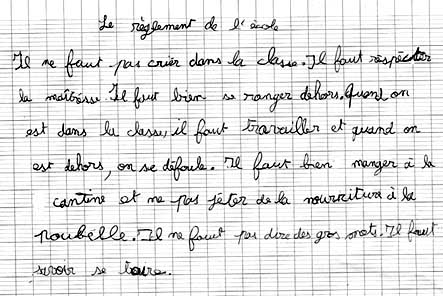 Le règlement de l'école
Il ne faut pas crier dans la classe. Il faut réspécter
la maîtrésse. Il faut bien se ranger dehors. Quand on
est dans la classe, il faut travailler et quand on
est dehors, on se défoule. Il faut bien manger à la
cantine et ne pas jéter de la nourriture à la
poubélle. Il ne faut pas dire des gros mots. Il faut
savoir se taire.